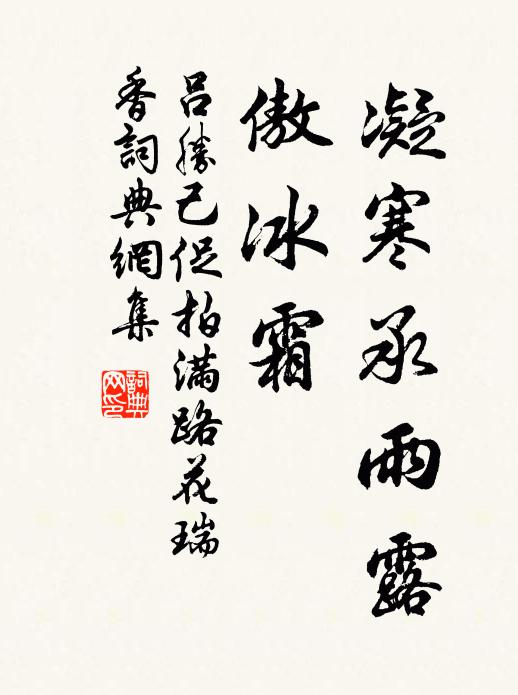 凝寒承雨露
傲冰霜
呂勝己促拍滿路花瑞
香詞典網集
詞典网印